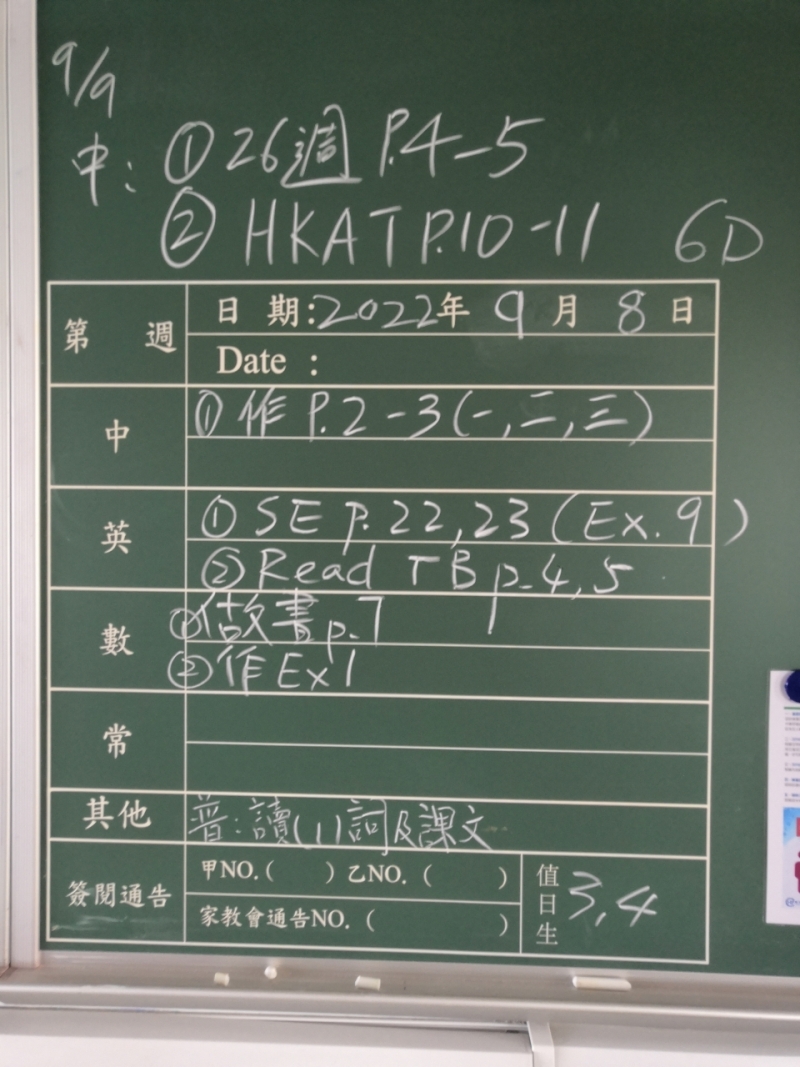 9/9
中: ① 26週 P.4-5
② HKAT P.10-11 6D
第 週
日 期:2022年 9月 8日
Date :
中
① 作 P.2-3(一,二,三)
英
① SE p.22,23 (Ex.9)
② Read TB p.4,5
數
① 做書 p.7
② 作 Ex1
常
其他
普:讀(1)詞及課文
簽閱通告
甲NO.( ) 乙NO. ( )
家教會通告NO. ( )
值日生 3,4